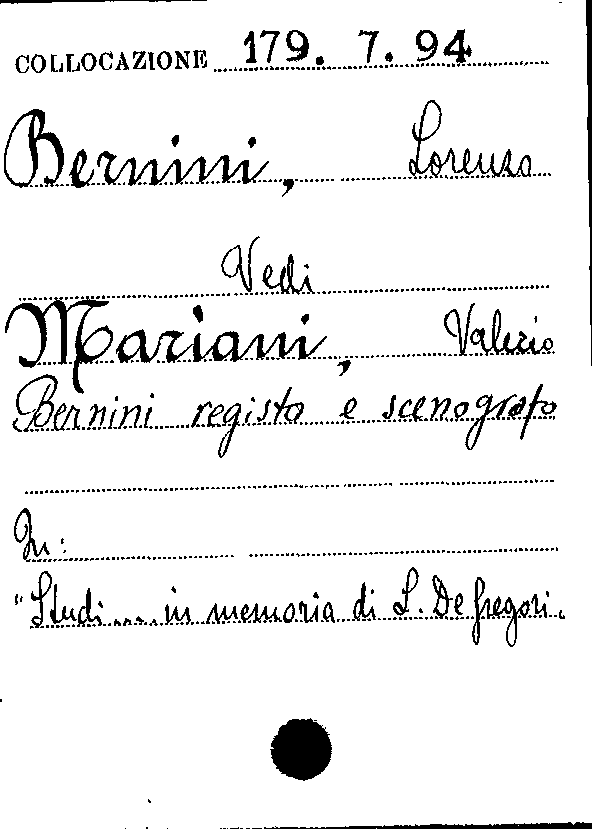 COLLOCAZIONE 179. 7. 94
Bernini, Lorenzo
Vedi
Mariani, Valerio
Bernini regista e scenografo
In:
"Studi .... in memoria di L. De Gregori.